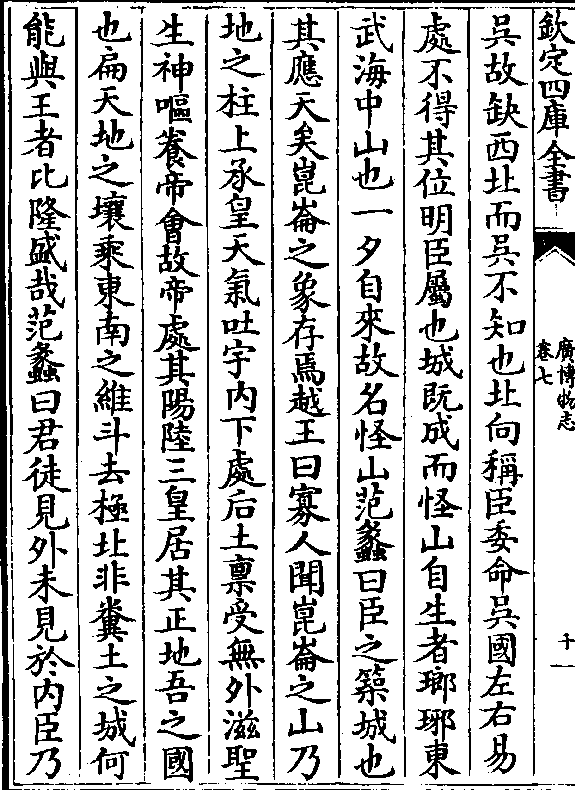 欽定四庫全書
廣博物志
卷七
十一
吳故缺西北而吳不知也北向稱臣委命吳國左右易
處不得其位明臣屬也城既成而怪山自生者瑯琊東
武海中山也一夕自來故名怪山范蠡曰臣之築城也
其應天矣崑崙之象存焉越王曰寡人聞崑崙之山乃
地之柱上承皇天氣吐宇内下處后土禀受無外滋聖
生神嘔養帝會故帝處其陽陸三皇居其正地吾之國
也扁天地之壤乘東南之維斗去極北非糞土之城何
能與王者比隆盛哉范蠡曰君徒見外未見於内臣乃